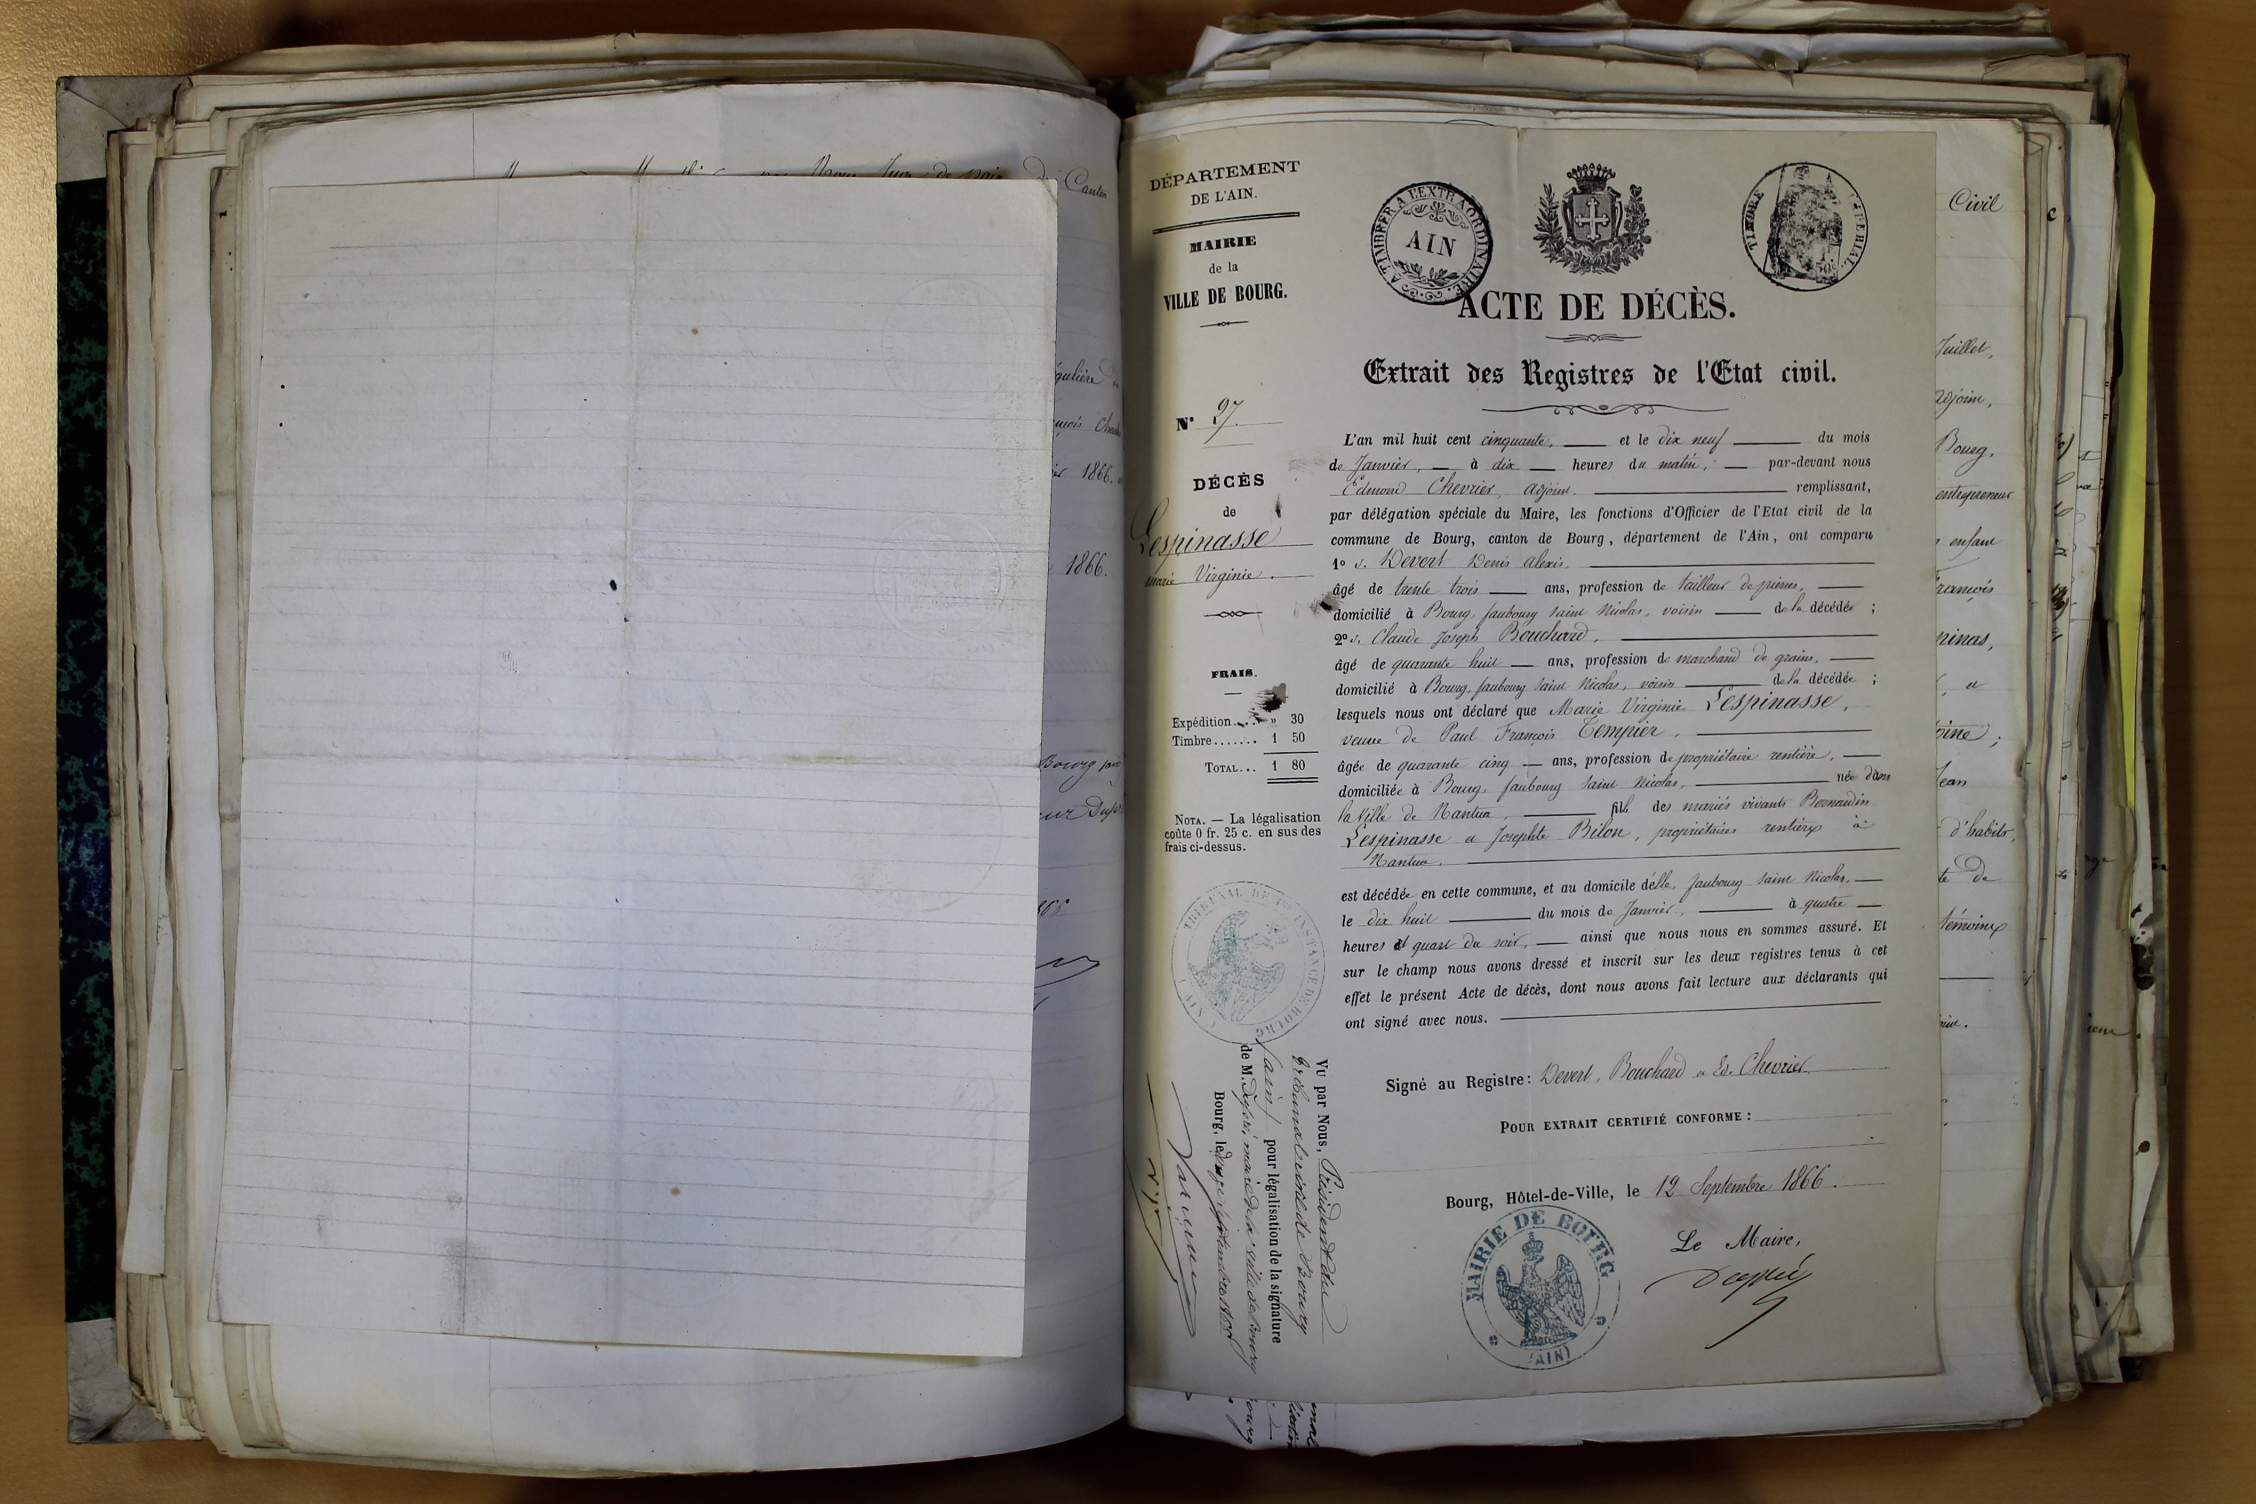 Canton
1866.
1866.
DÉPARTEMENT
DE L'AIN.
MAIRIE
de la
VILLE DE BOURG.
N° 27
DÉCÈS
de
Lespinasse
Marie Virginie.
FRAIS.
Expédition.... " 30
Timbre....... 1 50
TOTAL... 1 80
NOTA. — La légalisation
coûte 0 fr. 25 c. en sus des
frais ci-dessus.
TRIBUNAL DE 1re INSTANCE DE BOURG (AIN)
A TIMBRER A L'EXTRAORDINAIRE.
AIN
TIMBRE IMPERIAL
ACTE DE DÉCÈS.
Extrait des Registres de l'Etat civil.
L'an mil huit cent cinquante, et le dix neuf du mois
de Janvier, à dix heures du matin, par-devant nous
Edmond Chevrier, adjoint, remplissant,
par délégation spéciale du Maire, les fonctions d'Officier de l'Etat civil de la
commune de Bourg, canton de Bourg, département de l'Ain, ont comparu
1° s. Devert Denis Alexis.
âgé de trente trois ans, profession de tailleur de pierres,
domicilié à Bourg, faubourg saint Nicolas, voisin de la décédée ;
2° s. Claude Joseph Bouchard.
âgé de quarante huit ans, profession de marchand de grains,
domicilié à Bourg, faubourg saint Nicolas, voisin de la décédée ;
lesquels nous ont déclaré que Marie Virginie Lespinasse,
veuve de Paul François Tempier,
âgée de quarante cinq ans, profession de propriétaire rentière,
domiciliée à Bourg, faubourg saint Nicolas, née dans
la ville de Nantua, fille des mariés vivants Bernardin
Lespinasse et Josephte Bilon, propriétaires rentiers à
Nantua.
est décédée en cette commune, et au domicile d'elle, faubourg saint Nicolas,
le dix huit du mois de Janvier, à quatre
heures et quart du soir, ainsi que nous nous en sommes assuré. Et
sur le champ nous avons dressé et inscrit sur les deux registres tenus à cet
effet le présent Acte de décès, dont nous avons fait lecture aux déclarants qui
ont signé avec nous.
Signé au Registre: Devert, Bouchard et Ed. Chevrier.
POUR EXTRAIT CERTIFIÉ CONFORME :
Bourg, Hôtel-de-Ville, le 12 Septembre 1866.
Le Maire,
MAIRIE DE BOURG
(AIN)
Vu par Nous, Président du
tribunal civil de Bourg
(ain) pour légalisation de la signature
de M. maire de la ville de Bourg
Bourg, le douze septembre
Civil
Juillet,
adjoint,
Bourg,
entrepreneur
enfant
François
et
Jean
d'habits,
de
témoins